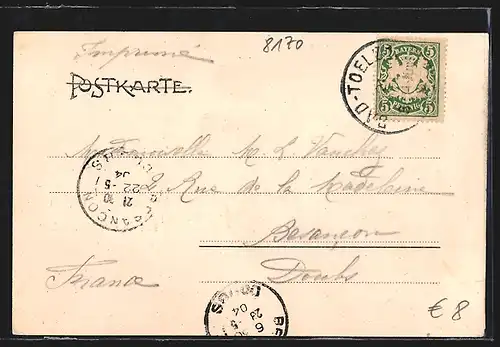 8170
Imprimé
POSTKARTE.
5 BAYERN 5
5 PFENNIG 5
BAD-TOELZ
Mademoiselle M L Vauchey
2, Rue de la Madeleine
Besançon
Doubs
France
BESANÇON
21 30
22 -5
04
DOUBS
04
€ 8